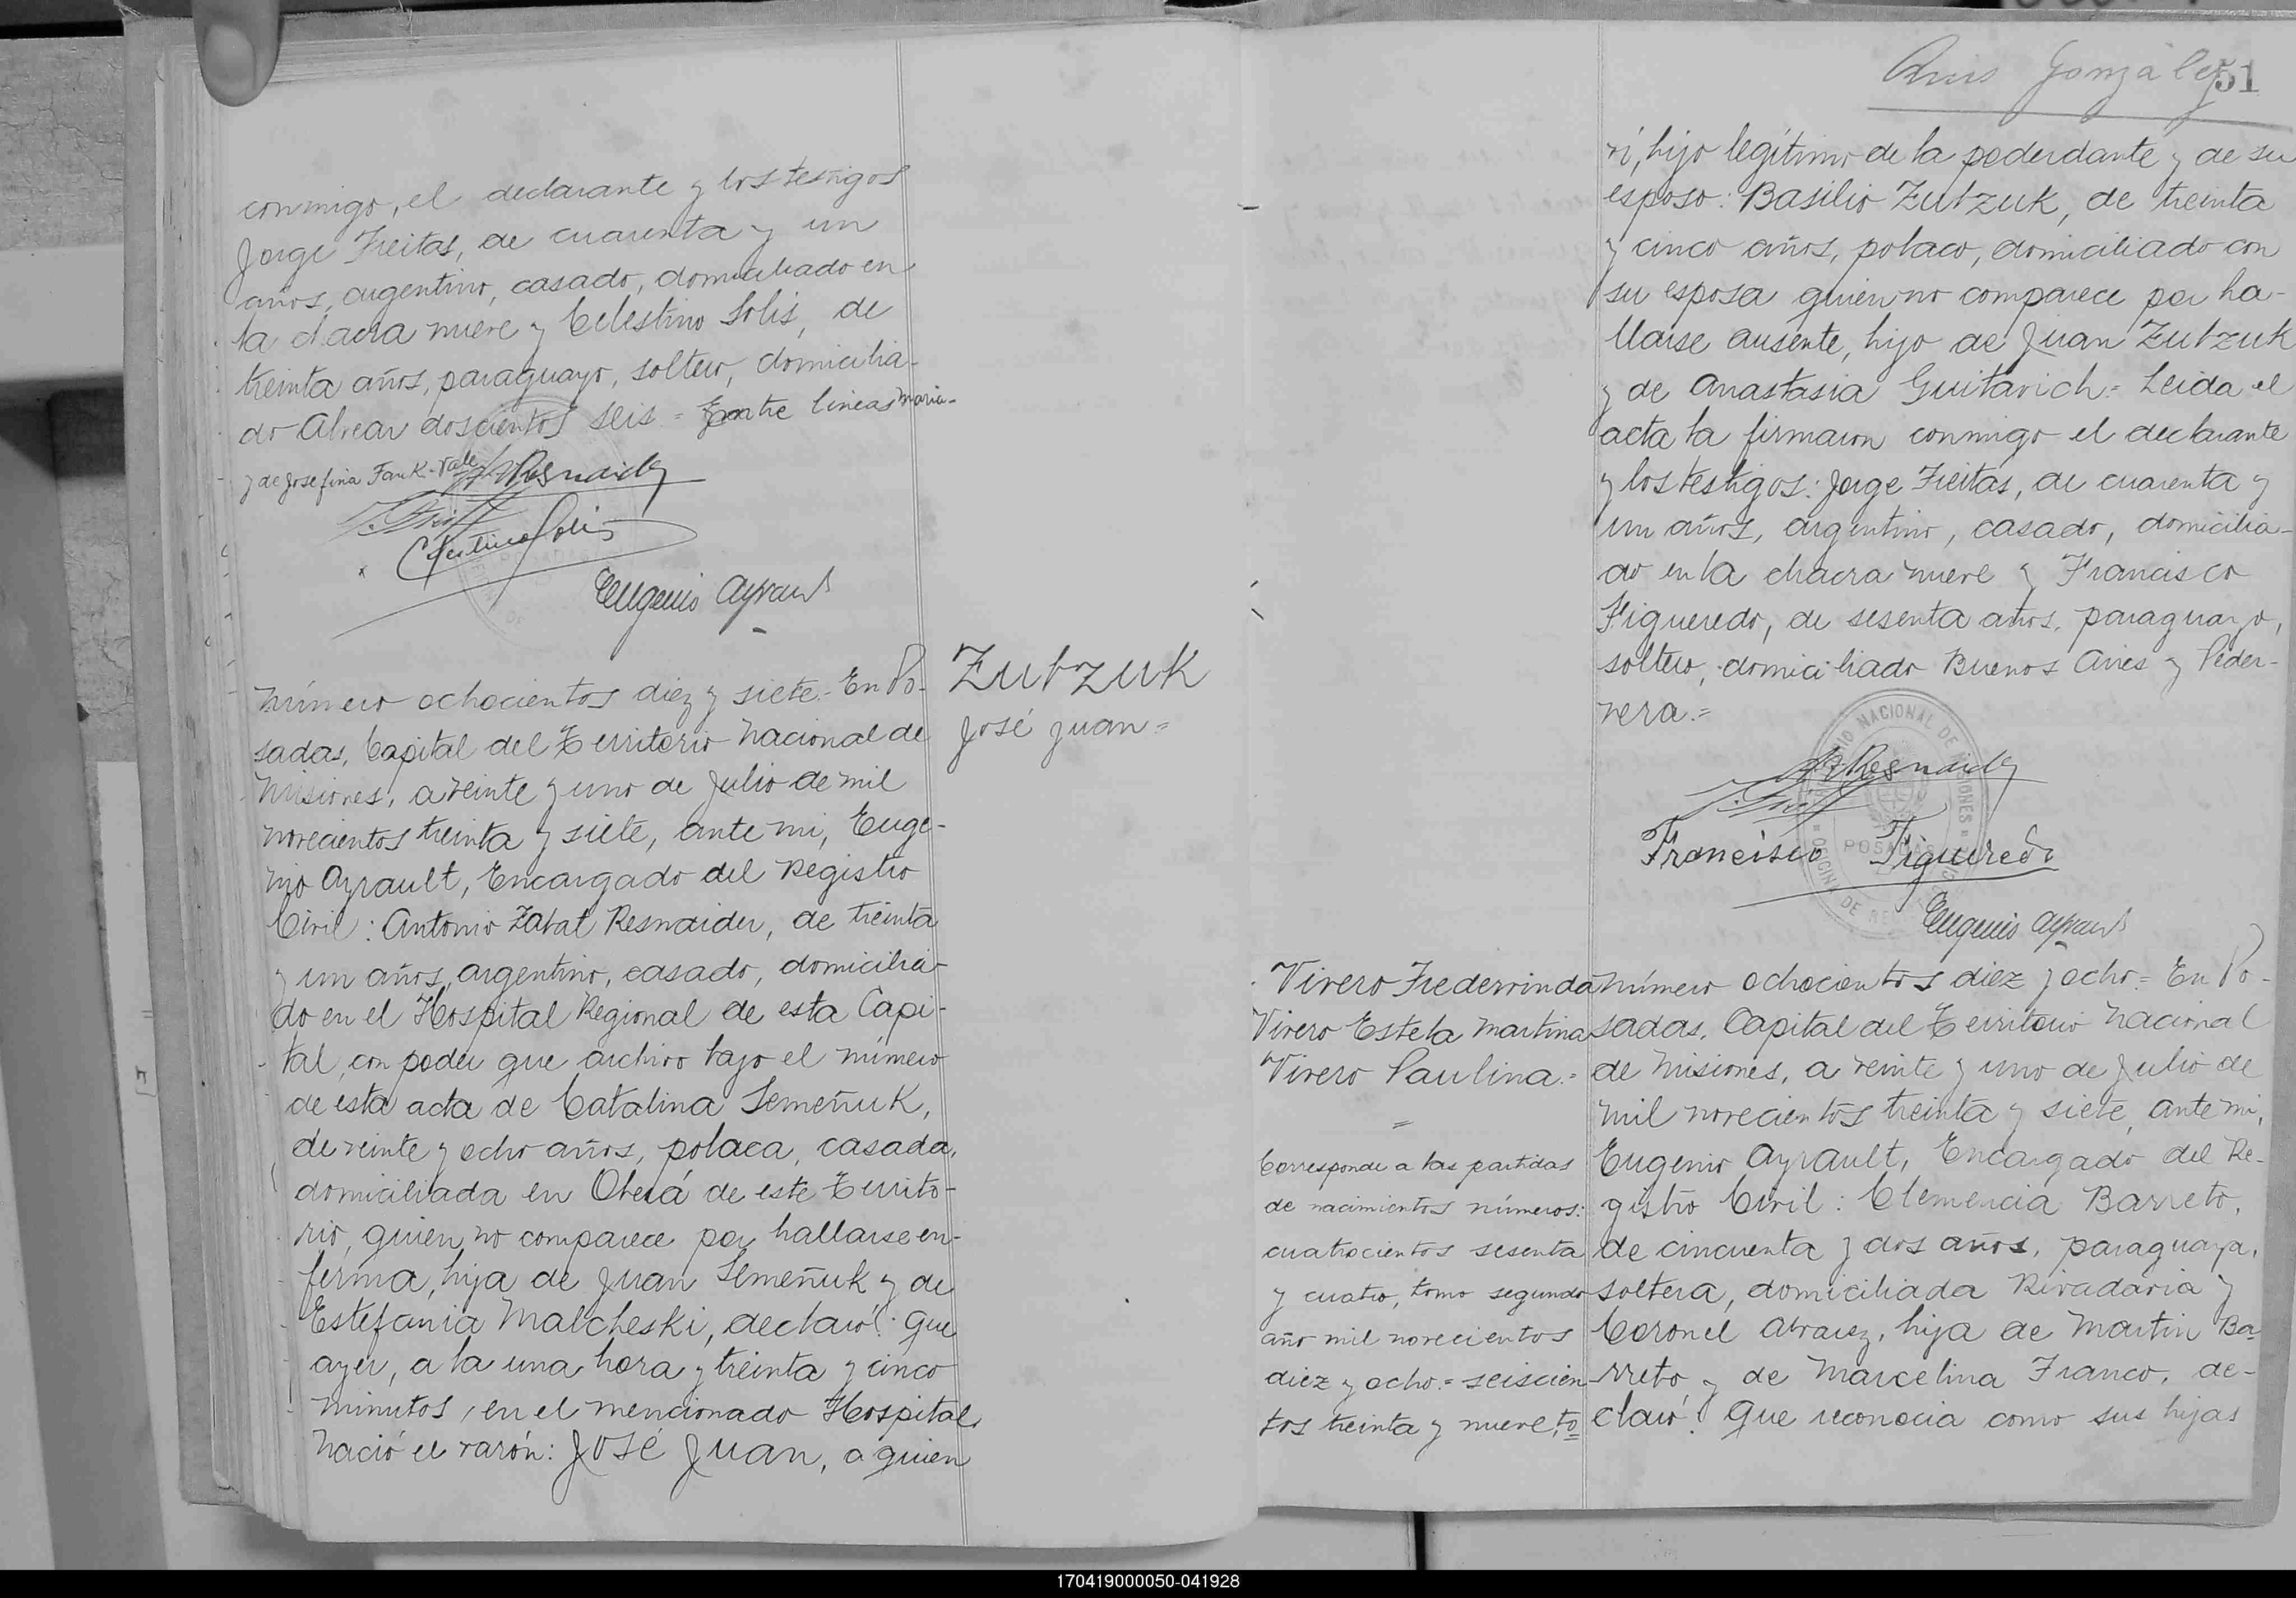 conmigo, el declarante y los testigos
Jorge Freitas, de cuarenta y un
años, argentino, casado, domiciliado en
la chacra nueve y Celestino Solis, de
treinta años, paraguayo, soltero, domicilia-
do Alvear doscientos seis = Entre lineas Maria-
y de Josefina Fank-Vale
Celestino Solis
Eugenio Ayrault
Número ochocientos diez y siete.- En Po-
sadas, Capital del Territorio Nacional de
Misiones, a veinte y uno de Julio de mil
novecientos treinta y siete, ante mi, Euge-
nio Ayrault, Encargado del Registro
Civil: Antonio Zabal Resnaider, de treinta
y un años, argentino, casado, domicilia-
do en el Hospital Regional de esta Capi-
tal, con poder que archivo bajo el número
de esta acta de Catalina Semeñuk,
de veinte y ocho años, polaca, casada,
domiciliada en Oberá de este Territo-
rio, quien no comparece por hallarse en-
ferma, hija de Juan Semeñuk y de
Estefania Malcheski, declaró: Que
ayer, a la una hora y treinta y cinco
minutos, en el mencionado Hospital,
nació el varón: JOSÉ JUAN, a quien
ZUBZUK
José Juan =
51
ví, hijo legítimo de la poderdante y de su
esposo: Basilio Zubzuk, de treinta
y cinco años, polaco, domiciliado con
su esposa quien no comparece por ha-
llarse ausente, hijo de Juan Zubzuk
y de Anastasia Guitavich = Leida el
acta la firmaron conmigo el declarante
y los testigos: Jorge Freitas, de cuarenta y
un años, argentino, casado, domicilia-
do en la chacra nueve y Francisco
Figueredo, de sesenta años, paraguayo,
soltero, domiciliado Buenos Aires y Peder-
nera.=
Francisco Figueredo
POSADAS
Eugenio Ayrault
Vivero Frederinda
Vivero Estela Martina
Vivero Paulina.=
=
Corresponde a las partidas
de nacimientos números:
cuatrocientos sesenta
y cuatro, tomo segundo
año mil novecientos
diez y ocho.= seiscien-
tos treinta y nueve, to=
Número ochocientos diez y ocho = En Po-
sadas, Capital del Territorio Nacional
de Misiones, a veinte y uno de Julio de
mil novecientos treinta y siete, ante mi,
Eugenio Ayrault, Encargado del Re-
gistro Civil: Clemencia Barreto,
de cincuenta y dos años, paraguaya,
soltera, domiciliada Rivadavia y
Coronel Alvarez, hija de Martin Ba-
rreto y de Marcelina Franco, de-
claró: Que reconocia como sus hijas
170419000050-041928